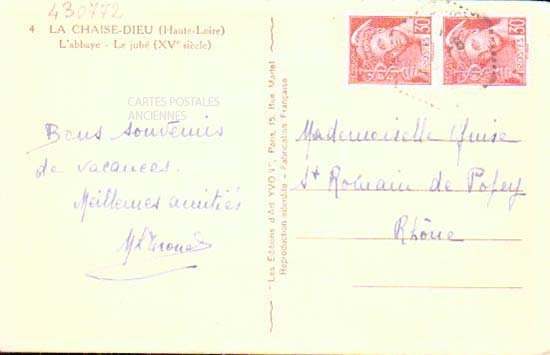 430772
4 LA CHAISE-DIEU (Haute-Loire)
L'abbaye - Le jubé (XVe siècle)
CARTES POSTALES
ANCIENNES
Bons souvenirs
de vacances.
Meilleures amitiés
"Les Editions d'Art YVON", Paris, 15, Rue Martel
Reproduction interdite - Fabrication Française
30
POSTES
30
POSTES
Mademoiselle
St Romain de Popey
Rhône